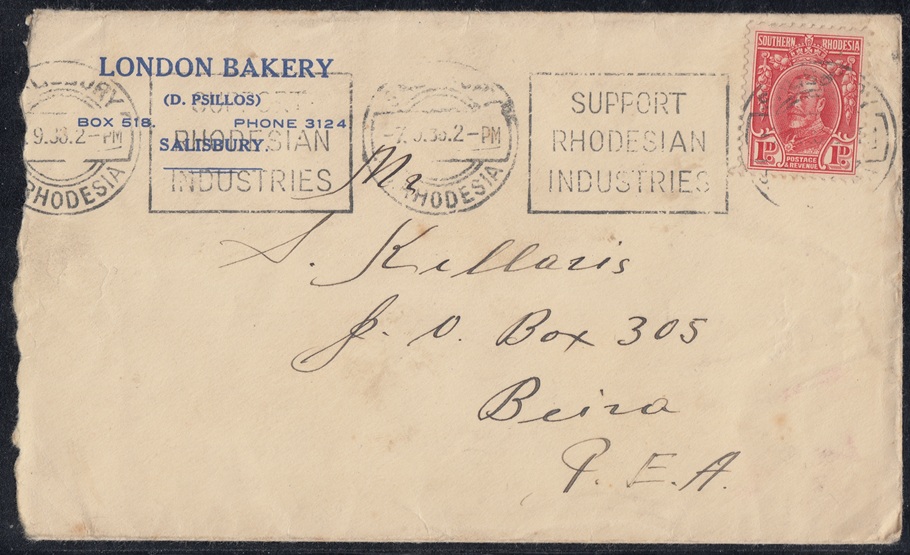 LONDON BAKERY
(D. PSILLOS)
BOX 518. PHONE 3124
SALISBURY.
SUPPORT
RHODESIAN
INDUSTRIES
9.38.2-PM
RHODESIA
SALISBURY
-7.9.38.2-PM
RHODESIA
SUPPORT
RHODESIAN
INDUSTRIES
SOUTHERN RHODESIA
1D. POSTAGE & REVENUE 1D.
Mr
S. Kellaris
P. O. Box 305
Beira
P. E. A.